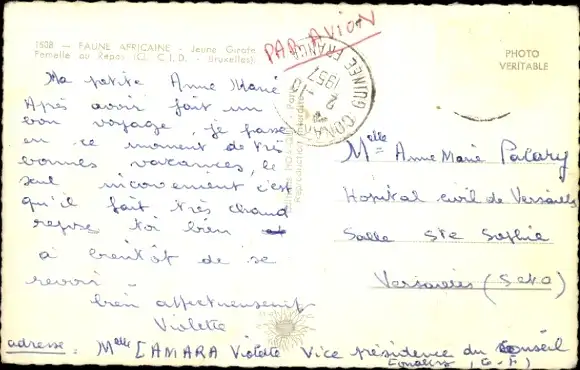 1508 — FAUNE AFRICAINE - Jeune Girafe
Femelle au Repos (Cl. C.I.D. - Bruxelles).
PAR AVION
PHOTO
VERITABLE
GUINEE FRANÇAISE
CONAKRY
1957
Ma petite Anne Marie
Après avoir fait un
bon voyage, je passe
en ce moment de très
bonnes vacances, le
seul inconvenient c'est
qu'il fait très chaud
repose toi bien et
à bientôt de se
revoir
bien affectueusement
Violette
Melle Anne Marie Palary
Hopital civil de Versailles
Salle Ste Sophie
Versailles (S et O)
adresse : Melle CAMARA Violette Vice présidence du Conseil
Conakry (G-F)